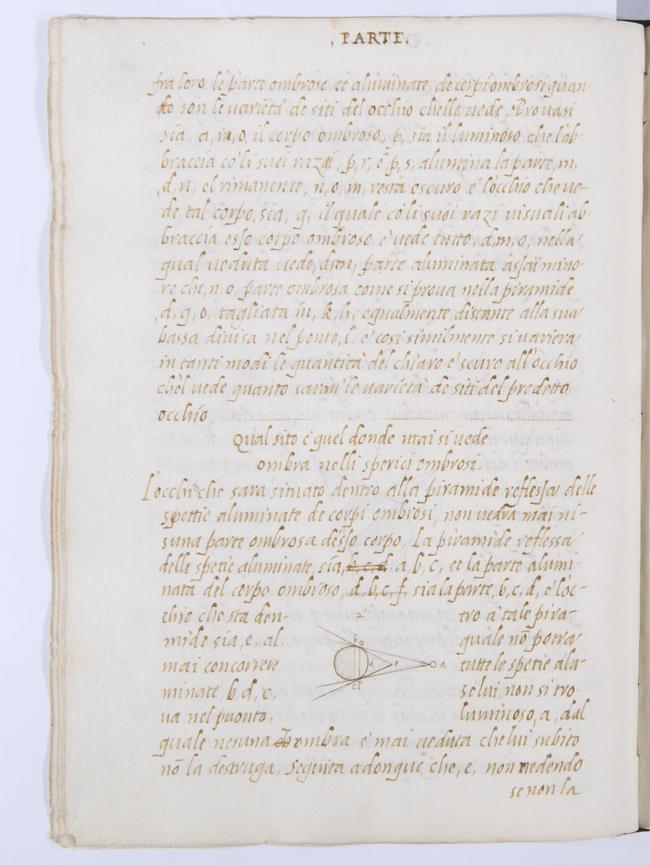 , PARTE,
fra loro le parte ombrose et aluminate de corpi ombrosi quan-
to son le varietà de siti del occhio chelle vede. Provasi
sia, a, m, o, il corpo ombroso, p, sia il luminoso che l'ab-
braccia co li suoi razzi, p, r, e p, s, alumina la parte, m,
d, n, el rimanente, n, o, m, resta oscuro e l'occhio che ve-
de tal corpo, sia, q, il quale co li suoi razi visuali ab-
braccia esso corpo ombroso e vede tutto, d, m, o, nella
qual veduta vede, d, m, parte aluminata assai mino-
re che, n, o, parte ombrosa come si prova nella piramide
d, q, o, tagliata in, k, h, equalmente distante alla sua
bassa divisa nel ponto, i, e cosi similmente si variera
in tanti modi le quantità del chiaro e scuro all'occhio
chel vede quanto saran le varietà de siti del predetto
occhio
Qual sito è quel donde mai si vede
ombra nelli sperici ombrosi.
L'occhio che sara situato dentro alla piramide reflessa delle
spettie aluminate de corpi ombrosi, non vedra mai ni-
suna parte ombrosa desso corpo, La piramide reflessa
delle spetie aluminate, sia, b, c, d, a, b, c, et la parte alumi-
nata del corpo ombroso, d, b, c, f, sia la parte, b, c, d, e l'oc-
chio che sta den- tro a tale pira-
mide sia, e, al quale nō potra
mai concorrere tutte le spetie alu-
minate, b, d, c, se lui non si tro
va nel puonto, luminoso, a, dal
quale nesuna ombra e mai veduta che lui subito
nō la destruga, Seguita adonque che, e, non vedendo
se non la